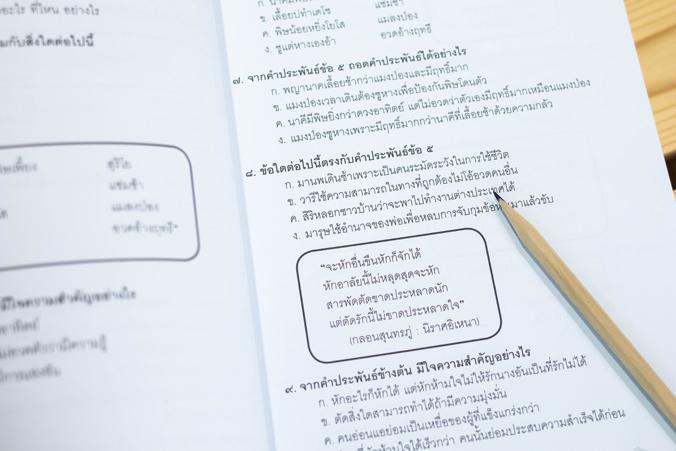 อะไร ที่ไหน อย่างไร
มกับสิ่งใดต่อไปนี้
สุริโย
แช่มช้า
แมลงป่อง
อวดอ้างฤทธี"
มีใจความสำคัญอย่างไร
ข. เลื้อยบทำเดโช
ค. พิษน้อยหยิ่งโยโส
ง. ชูแต่หางเองอ้า
แช่มช้า
แมลงป่อง
อวดอ้างฤทธี
๗. จากคำประพันธ์ข้อ ๕ ถอดคำประพันธ์ได้อย่างไร
ก. พญานาคเลื้อยช้ากว่าแมงป่องและมีฤทธิ์มาก
ข. แมงป่องเวลาเดินต้องชูหางเพื่อป้องกันพิษโดนตัว
ค. นาคีมีพิษยิ่งกว่าดวงอาทิตย์ แต่ไม่อวดว่าตัวเองมีฤทธิ์มากเหมือนแมงป่อง
ง. แมงป่องชูหางเพราะมีฤทธิ์มากกว่านาคีที่เลื้อยช้าด้วยความกลัว
๘. ข้อใดต่อไปนี้ตรงกับคำประพันธ์ข้อ ๕
ก. มานพเดินช้าเพราะเป็นคนระมัดระวังในการใช้ชีวิต
ข. วารีใช้ความสามารถในทางที่ถูกต้องไม่โอ้อวดคนอื่น
ค. สิริหลอกชาวบ้านว่าจะพาไปทำงานต่างประเทศได้
ง. มารุษใช้อำนาจของพ่อเพื่อหลบการจับกุมข้อหาเมาแล้วขับ
"จะหักอื่นขืนหักก็จักได้
หักอาลัยนี้ไม่หลุดสุดจะหัก
สารพัดตัดขาดประหลาดนัก
แต่ตัดรักนี้ไม่ขาดประหลาดใจ"
(กลอนสุนทรภู่ : นิราศอิเหนา)
๙. จากคำประพันธ์ข้างต้น มีใจความสำคัญอย่างไร
ก. หักอะไรก็หักได้ แต่หักห้ามใจไม่ให้รักนางอันเป็นที่รักไม่ได้
ข. ตัดสิ่งใดสามารถทำได้ถ้ามีความมุ่งมั่น
ค. คนอ่อนแอย่อมเป็นเหยื่อของผู้ที่แข็งแกร่งกว่า
ห้ามใจได้เร็วกว่า คนนั้นย่อมประสบความสำเร็จได้ก่อน